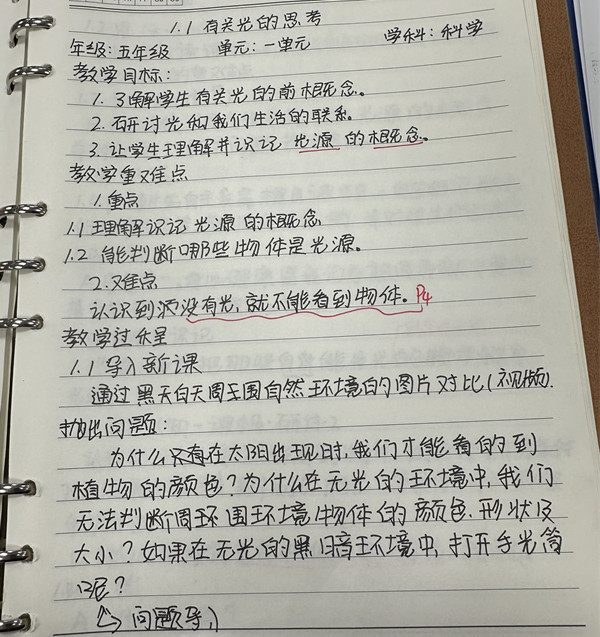 1.1 有关光的思考
年级:五年级 单元:一单元 学科:科学
教学目标:
1. 了解学生有关光的前概念。
2. 研讨光和我们生活的联系。
3. 让学生理解并识记 光源 的概念。
教学重难点
1. 重点
1.1 理解识记 光源 的概念
1.2 能判断哪些物体是光源。
2. 难点
认识到没有光,就不能看到物体。P4
教学过程
1.1 导入新课
通过黑天白天周围自然环境的图片对比(视频).
抛出问题:
为什么只有在太阳出现时,我们才能看的到
植物的颜色?为什么在无光的环境中,我们
无法判断周环围环境物体的颜色.形状及
大小?如果在无光的黑暗环境中,打开手光筒
呢?
问题导入